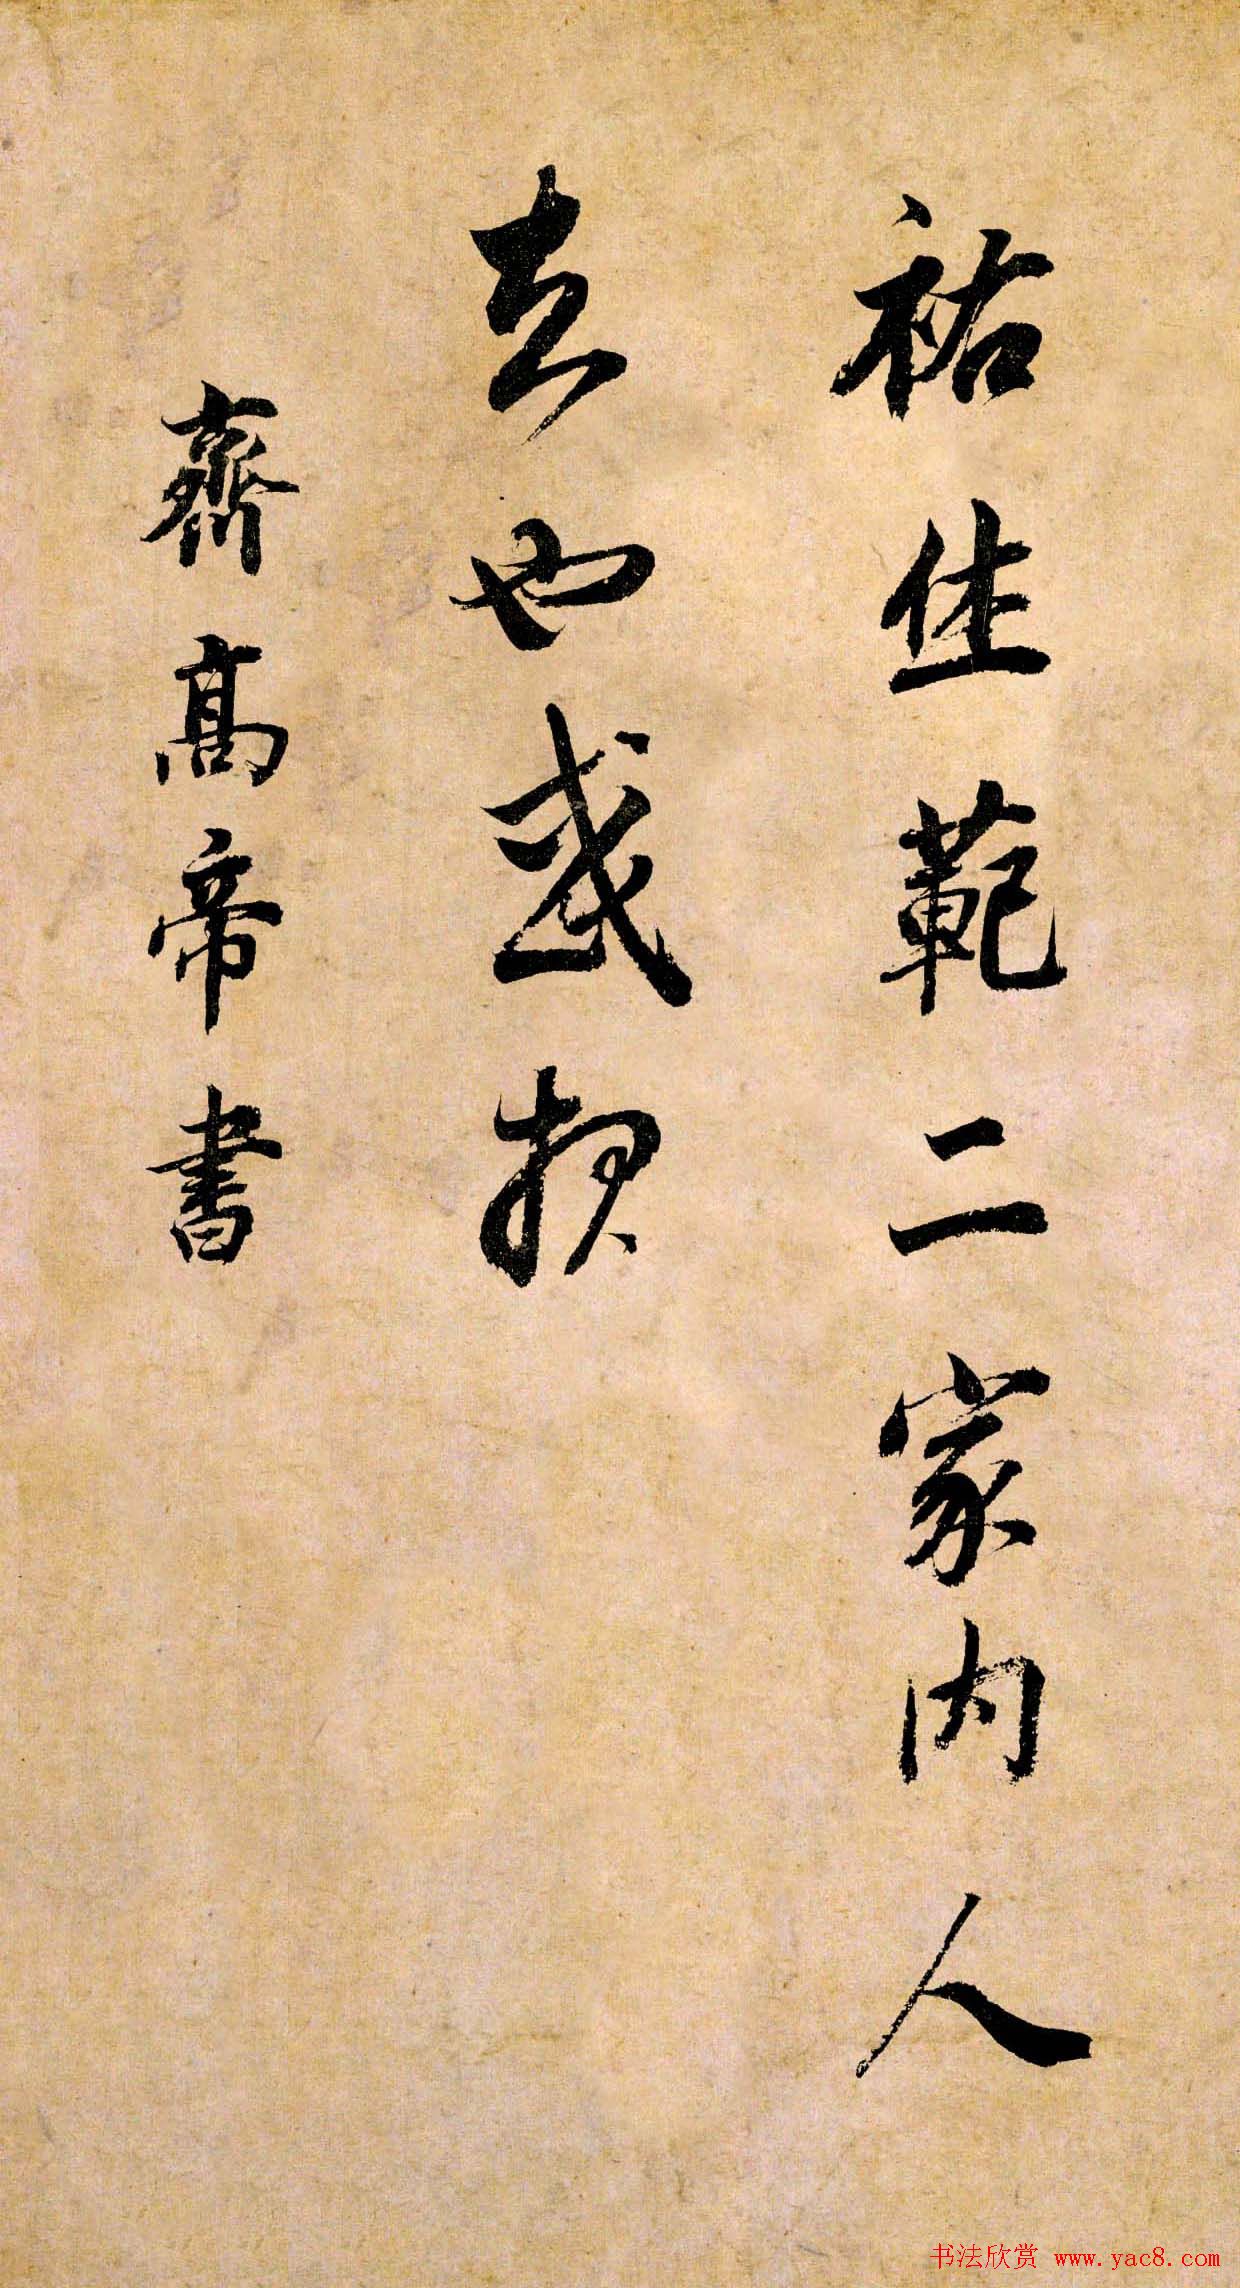 祐佳範二家内人
去也或損
齊高帝書
书法欣赏 www.yac8.com